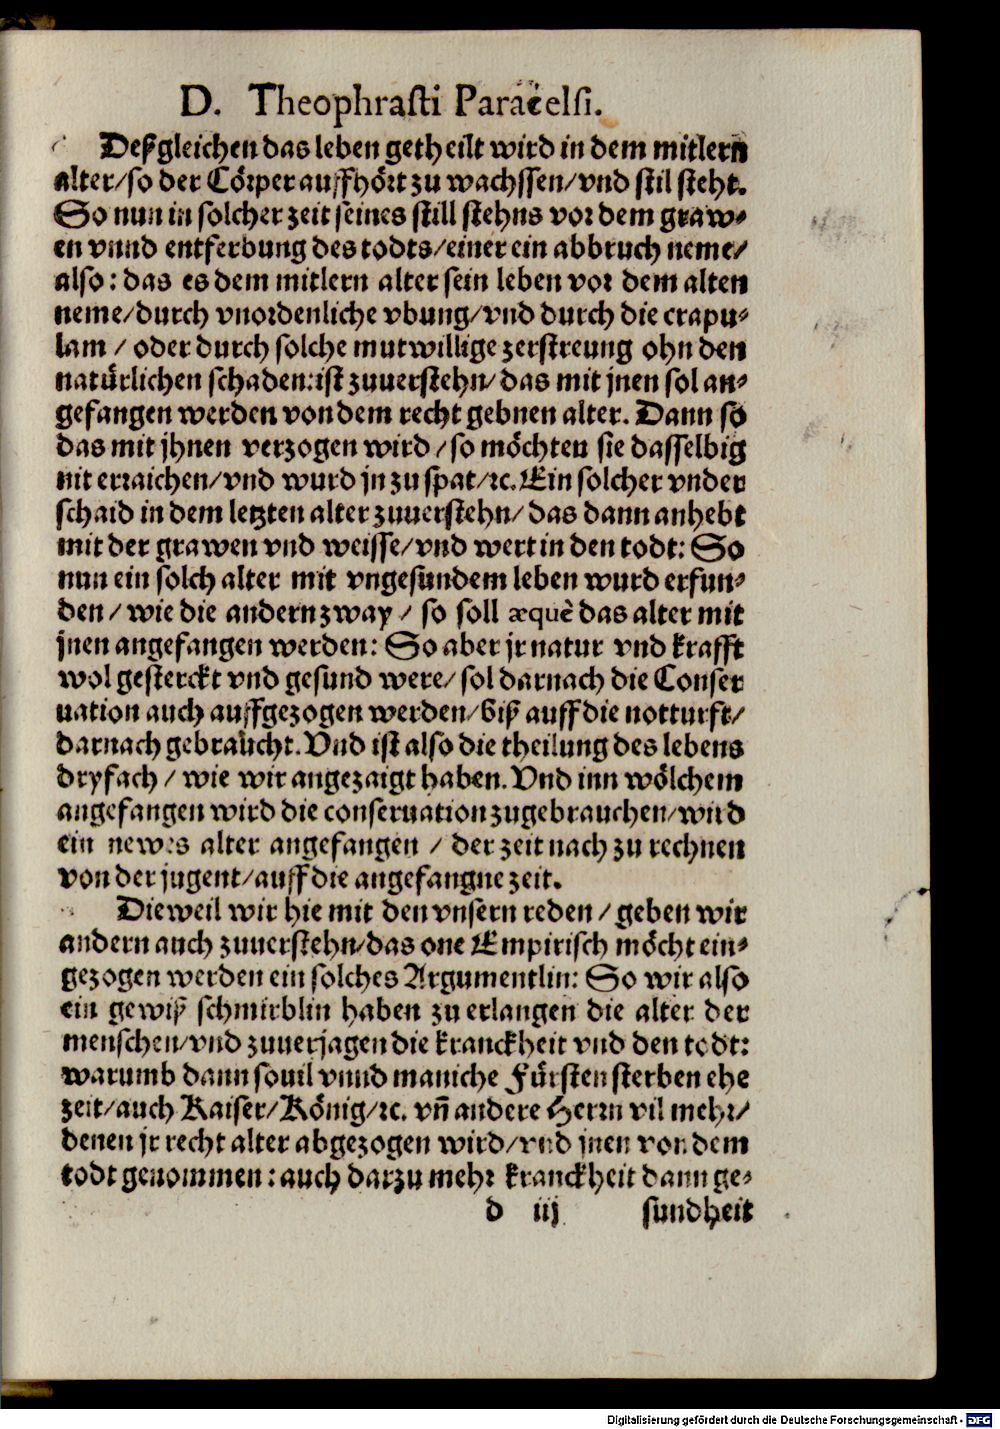 D. Theophrasti Paracelsi.
Deßgleichen das leben getheilt wird in dem mitlern
alter/so der Cörper auffhört zu wachssen/vnd stil steht.
So nun in solcher zeit seines still stehns vor dem graw-
en vnnd entferbung des todts/einer ein abbruch neme/
also: das es dem mitlern alter sein leben vor dem alten
neme/durch vnordenliche vbung/vnd durch die crapu-
lam / oder durch solche mutwillige zerstreung ohn den
natürlichen schaden: ist zuuerstehn/das mit jnen sol an-
gefangen werden von dem recht gebnen alter. Dann so
das mit jhnen verzogen wird/so möchten sie dasselbig
nit erraichen/vnd wurd jn zu spat/ꝛc. Ein solcher vnder
schaid in dem letzten alter zuuerstehn/das dann anhebt
mit der grawen vnd weisse/vnd wert in den todt: So
nun ein solch alter mit vngesundem leben wurd erfun-
den/wie die andern zway/ so soll æquè das alter mit
jnen angefangen werden: So aber jr natur vnd krafft
wol gesterckt vnd gesund were/sol darnach die Conser
uation auch auffgezogen werden/biß auff die notturft/
darnach gebraucht. Vnd ist also die theilung des lebens
dryfach/wie wir angezaigt haben. Vnd inn wölchem
angefangen wird die conseruation zugebrauchen/wird
ein newes alter angefangen / der zeit nach zu rechnen
von der jugent/auff die angefangne zeit.
Dieweil wir hie mit den vnsern reden/geben wir
andern auch zuuerstehn/das one Empirisch möcht ein-
gezogen werden ein solches Argumentlin: So wir also
ein gewiß schmirblin haben zu erlangen die alter der
menschen/vnd zuuerjagen die kranckheit vnd den todt:
warumb dann souil vnnd maniche Fürsten sterben ehe
zeit/auch Kaiser/König/ꝛc. vñ andere Herrn vil mehr/
denen jr recht alter abgezogen wird/vnd jnen von dem
todt genommen: auch darzu mehr kranckheit dann ge-
d iij sundheit
Digitalisierung gefördert durch die Deutsche Forschungsgemeinschaft - DFG